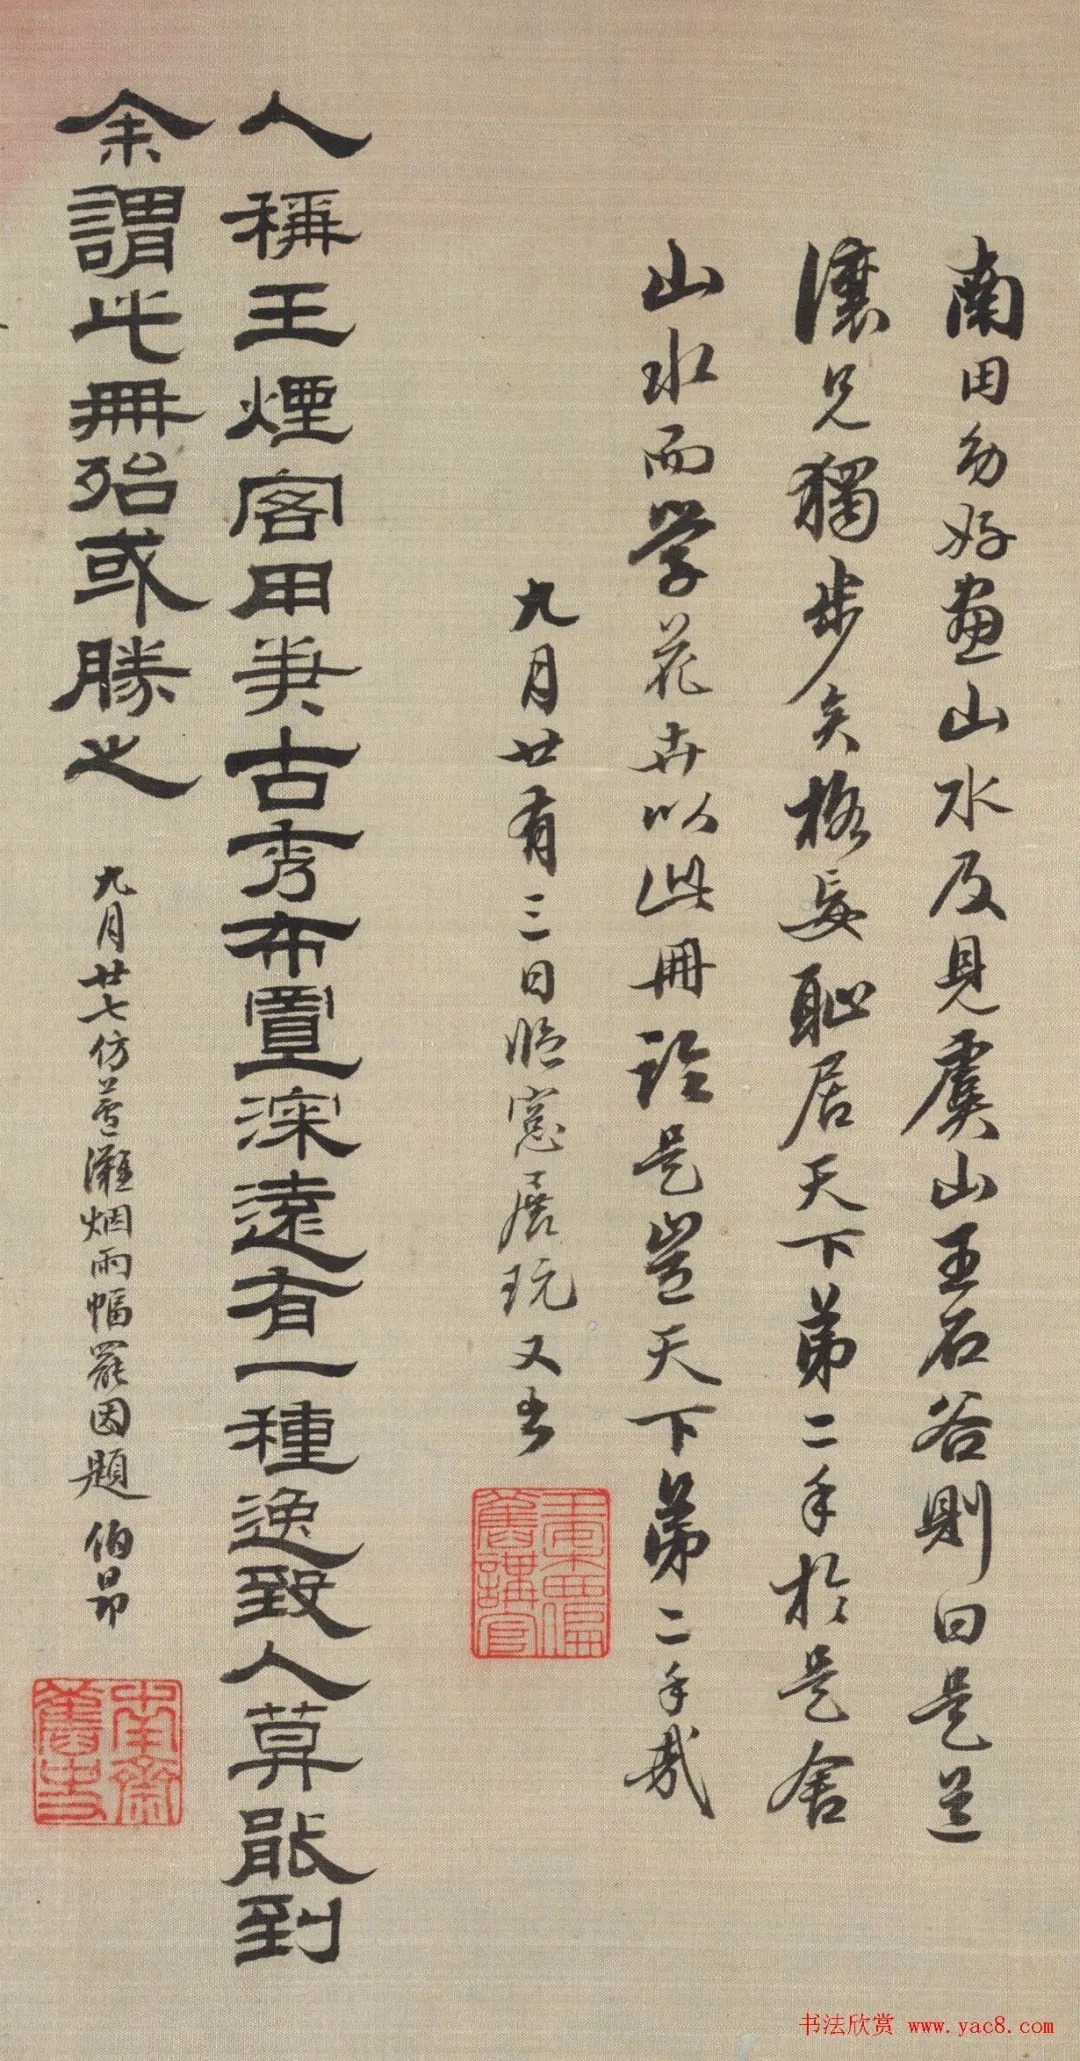 南田幼好畫山水及見虞山王石谷則曰是道
讓兄獨步矣格妄恥居天下第二手於是舍
山水而学花卉以此冊論是豈天下第二手哉
九月廿有三日臨窓展玩又書
人稱王煙客用筆古秀布置深遠有一種逸致人莫能到
余謂此冊殆或勝之
九月廿七仿蘆灘烟雨幅罷因題 伯昂
南齋舊史
书法欣赏 www.yac8.com